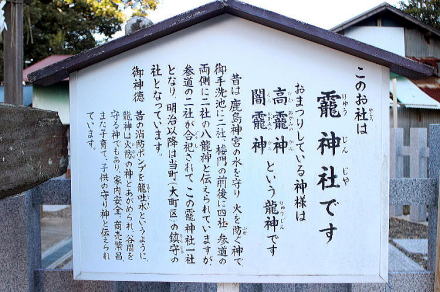 このお社は
龗神社です
りゅう じん じゃ
おまつりしている神様は
高龗神
闇龗神
という龍神です
りゅうじん
昔は鹿島神宮の水を守り、火を防ぐ神で、
御手洗池に二社、楼門の前後に四社、参道の
両側に二社の八龍神と伝えられていますが、
参道の二社が合祀されて、この龗神社一社
となり、明治以降は当町（大町区）の鎮守の
社となっています。
御神徳
昔の消防ポンプを龍吐水というように、
龍神は火防の神とあがめられ、谷間を
守る神でもあり、家内安全、商売繁昌
また子育て、子供の守り神と伝えられ
ています。